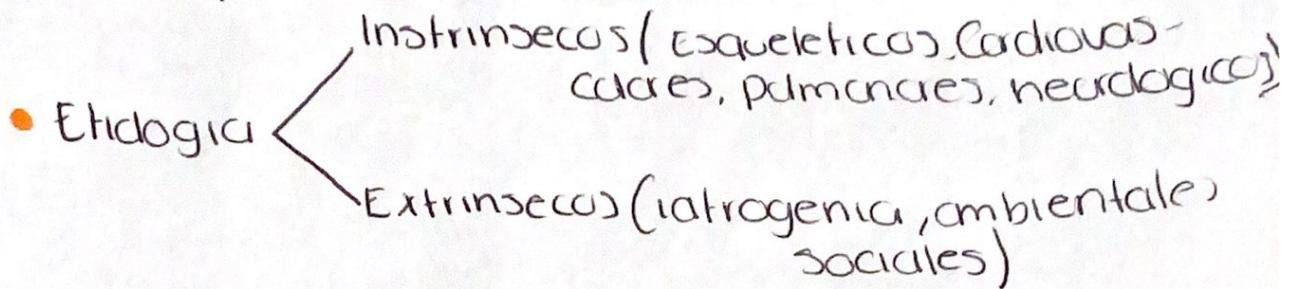 Instrinsecos (Esqueleticos, Cardiovas-
culares, pulmonares, neurologicos)
• Etiologia
Extrinsecos (iatrogenia, ambientales
sociales)